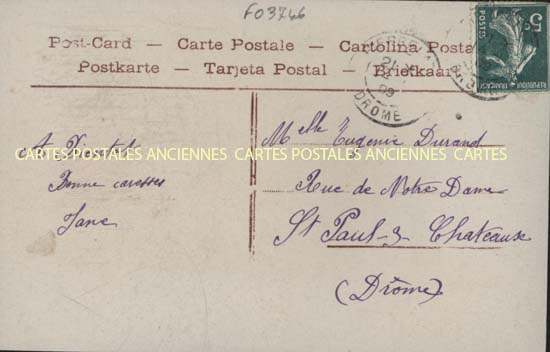 F03766
Post-Card — Carte Postale — Cartolina Posta
Postkarte — Tarjeta Postal — Briefkaar
5c
POSTES
REPUBLIQUE FRANÇAISE
24
09
DROME
CARTES POSTALES ANCIENNES CARTES POSTALES ANCIENNES CARTES
Bonne caresses
Jane
Melle Eugenie Durand
Rue de Notre Dame
St Paul-3-Chateaux
(Drôme)